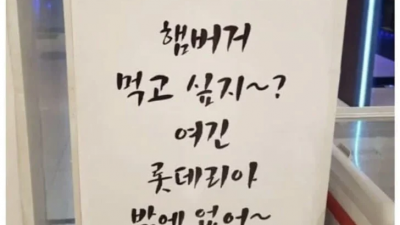 햄버거
먹고 싶지~?
여긴
롯데리아
밖에 없어~